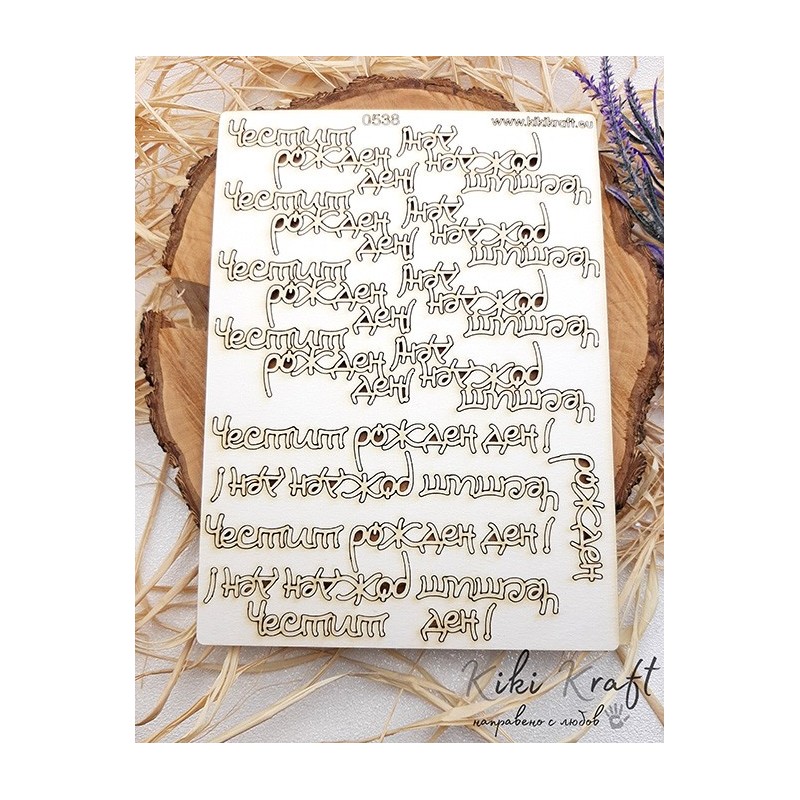 0538 www.kikikraft.eu
Честит рожден ден!
Честит рожден ден!
Честит рожден ден!
Честит рожден ден!
Честит рожден ден!
Честит рожден ден!
Честит рожден ден!
Честит рожден ден!
Честит рожден ден!
Честит рожден ден!
Честит рожден ден!
Честит рожден ден!
Честит ден!
рожден
Kiki Kraft
направено с любов